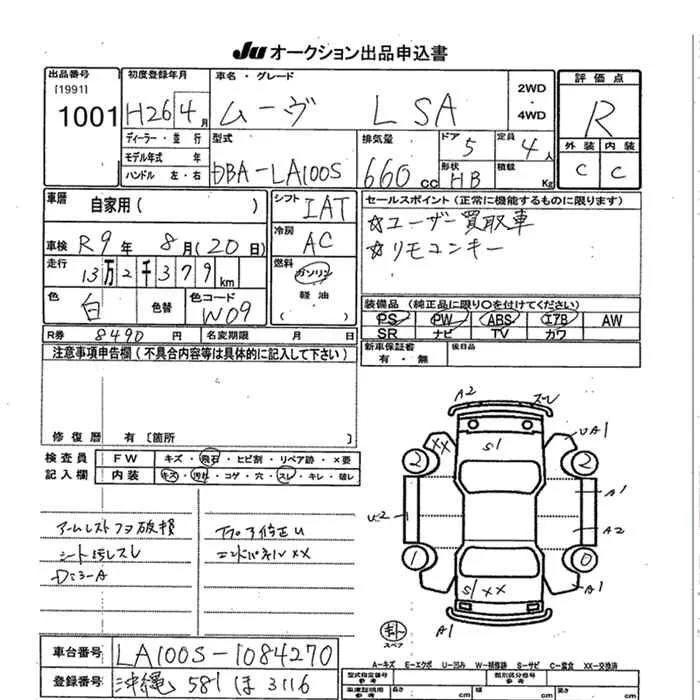 Ju オークション出品申込書
出品番号
[1991]
1001
初度登録年月
H26 4 月
車名・グレード
ムーヴ L SA
2WD
・
4WD
評価点
R
外装 内装
C C
ディーラー・並行
モデル年式 年
ハンドル 左・右
型式
DBA-LA100S
排気量
660 cc
ドア
5
形状
HB
定員
4人
積載
Kg
車歴
自家用( )
車検 R9年 8月(20日)
走行
13万2千379km
色
白
色替
色コード
W09
シフト
IAT
冷房
AC
燃料
ガソリン
・
軽油
( )
セールスポイント(正常に機能するものに限ります)
☆ユーザー買取車
☆リモコンキー
装備品(純正品に限り○を付けてください)
PS PW ABS エアB AW
SR ナビ TV カワ
新車保証書
有・無
後日品
R券 8490 円
名変期限 月 日
注意事項申告欄(不具合内容等は具体的に記入して下さい)
修復歴 有 [箇所 ]
検査員
記入欄
FW キズ・飛石・ヒビ割・リペア跡・×要
内装 キズ・汚れ・コゲ・穴・スレ・キレ・破レ
アームレストフタ破損
シート汚レスレ
D=3-A
エンドパネルXX
A2 スレ
UA1
XX
S1
2 2
A1
U2
A2
1 0
S1 XX
A1
A1
スペア
車台番号 LA100S-1084270
登録番号 沖縄 581 ほ 3116
A-キズ E-エクボ U-凹み W-補修跡 S-サビ C-腐食 XX-交換済
型式指定番号
参考
類別区分番号
参考
車庫証明用
参考
長さ cm
幅 cm
高さ cm